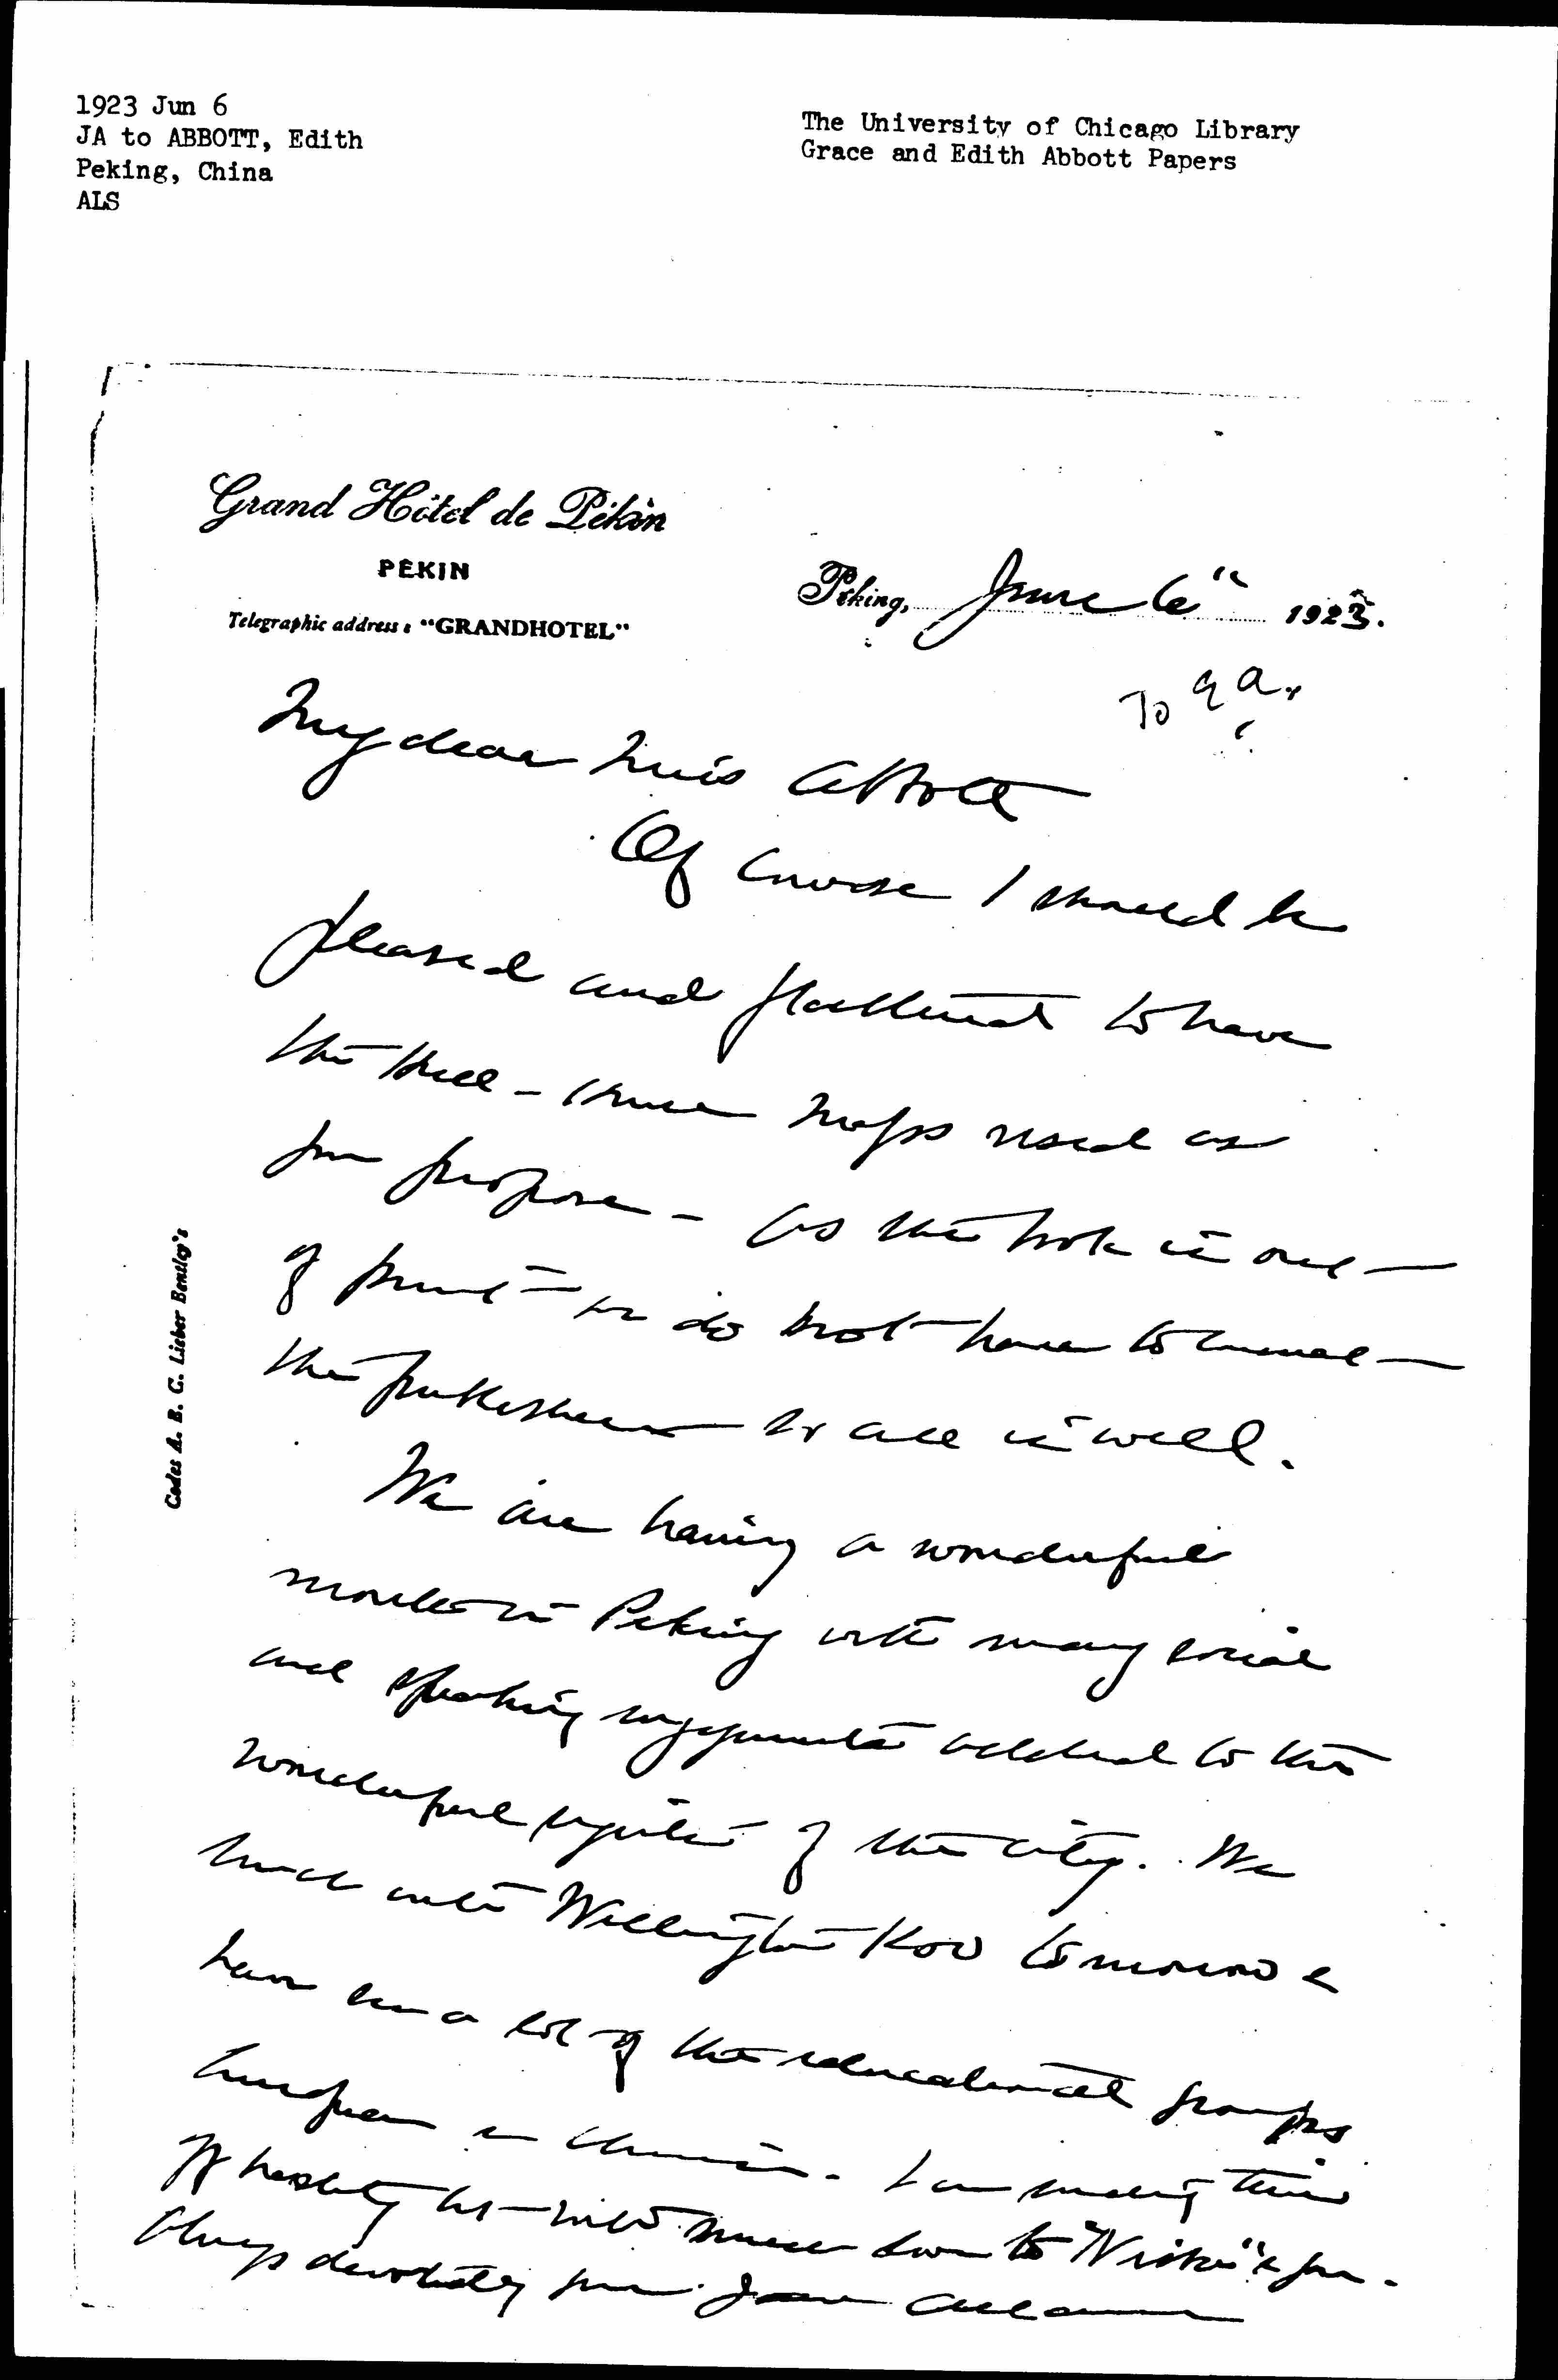 1923 Jun 6
JA to ABBOTT, Edith
Peking, China
ALS
The University of Chicago Library
Grace and Edith Abbott Papers
Grand Hôtel de Pékin
PÉKIN
Telegraphic address : "GRANDHOTEL"
Peking, June 6" 1923.
To
My dear Miss Abbott
Of course I should be
pleased and flattered to have
the Hull-House Maps used as
you propose - as the book is out
of print we do not have to consult
the publishers so all is well.
We are having a wonderful
month in Peking with many social
and speaking engagements added to the
wonderful sights of the city. We
lunch with Wellington Koo tomorrow &
have seen a lot of the educational groups
European & Chinese. I am sending this
hastily but with much love to "Nisba" & you.
Always devotedly yours Jane Addams
Codes A. B. C. Lieber Bentley's